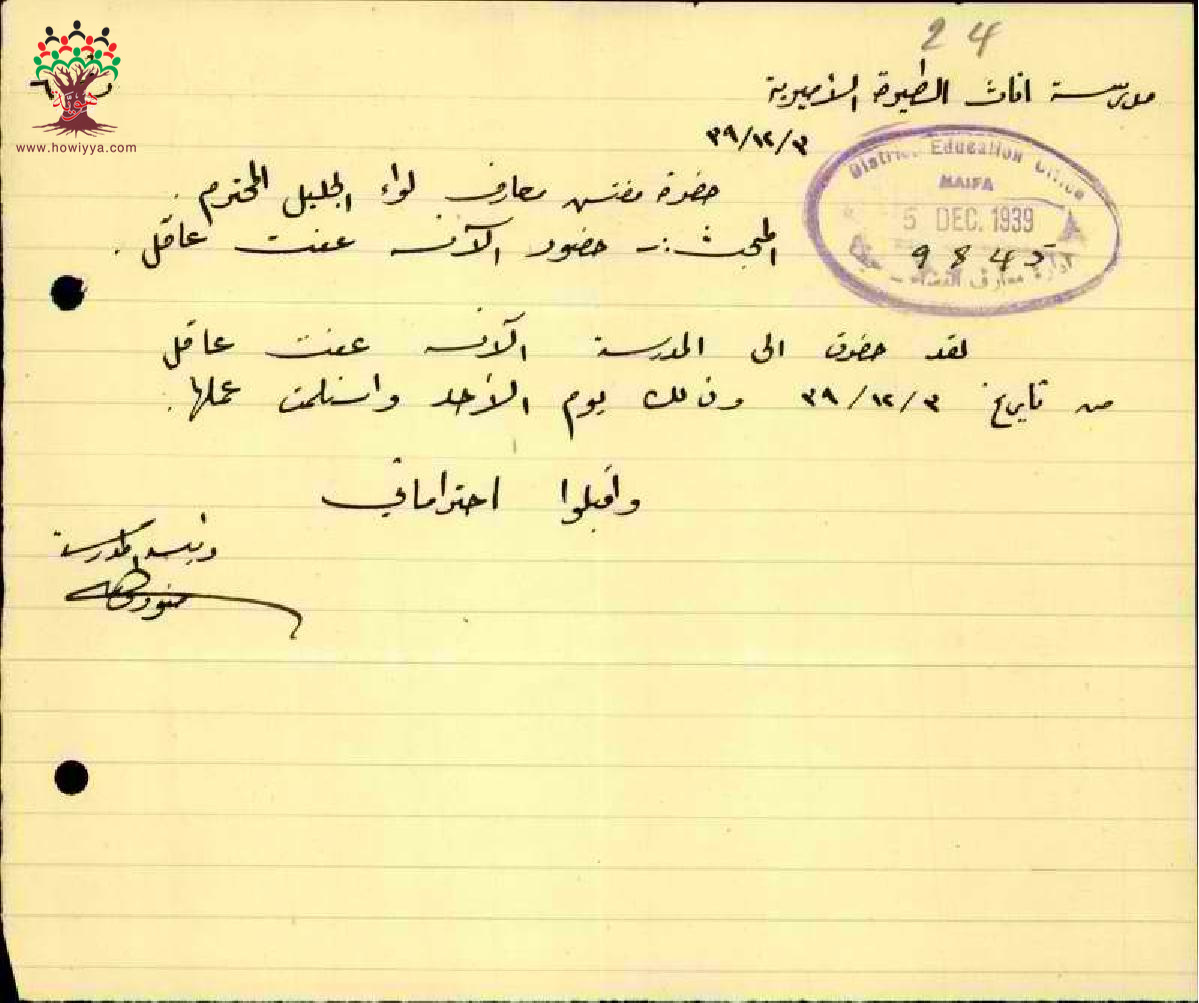 24
مدرسة اناث الطيرة الأميرية
www.howiyya.com
٣٩/١٢/٣
District Education Office
HAIFA
5 DEC. 1939
9845
ادارة معارف القضاء - حيفا
حضرة مفتش معارف لواء الجليل المحترم.
المبحث :- حضور الآنسة عفت عاقل.
لقد حضرت الى المدرسة الآنسة عفت عاقل
من تاريخ ٣٩/١٢/٣ وذلك يوم الأحد واستلمت عملها.
واقبلوا احتراماتي
رئيسة المدرسة